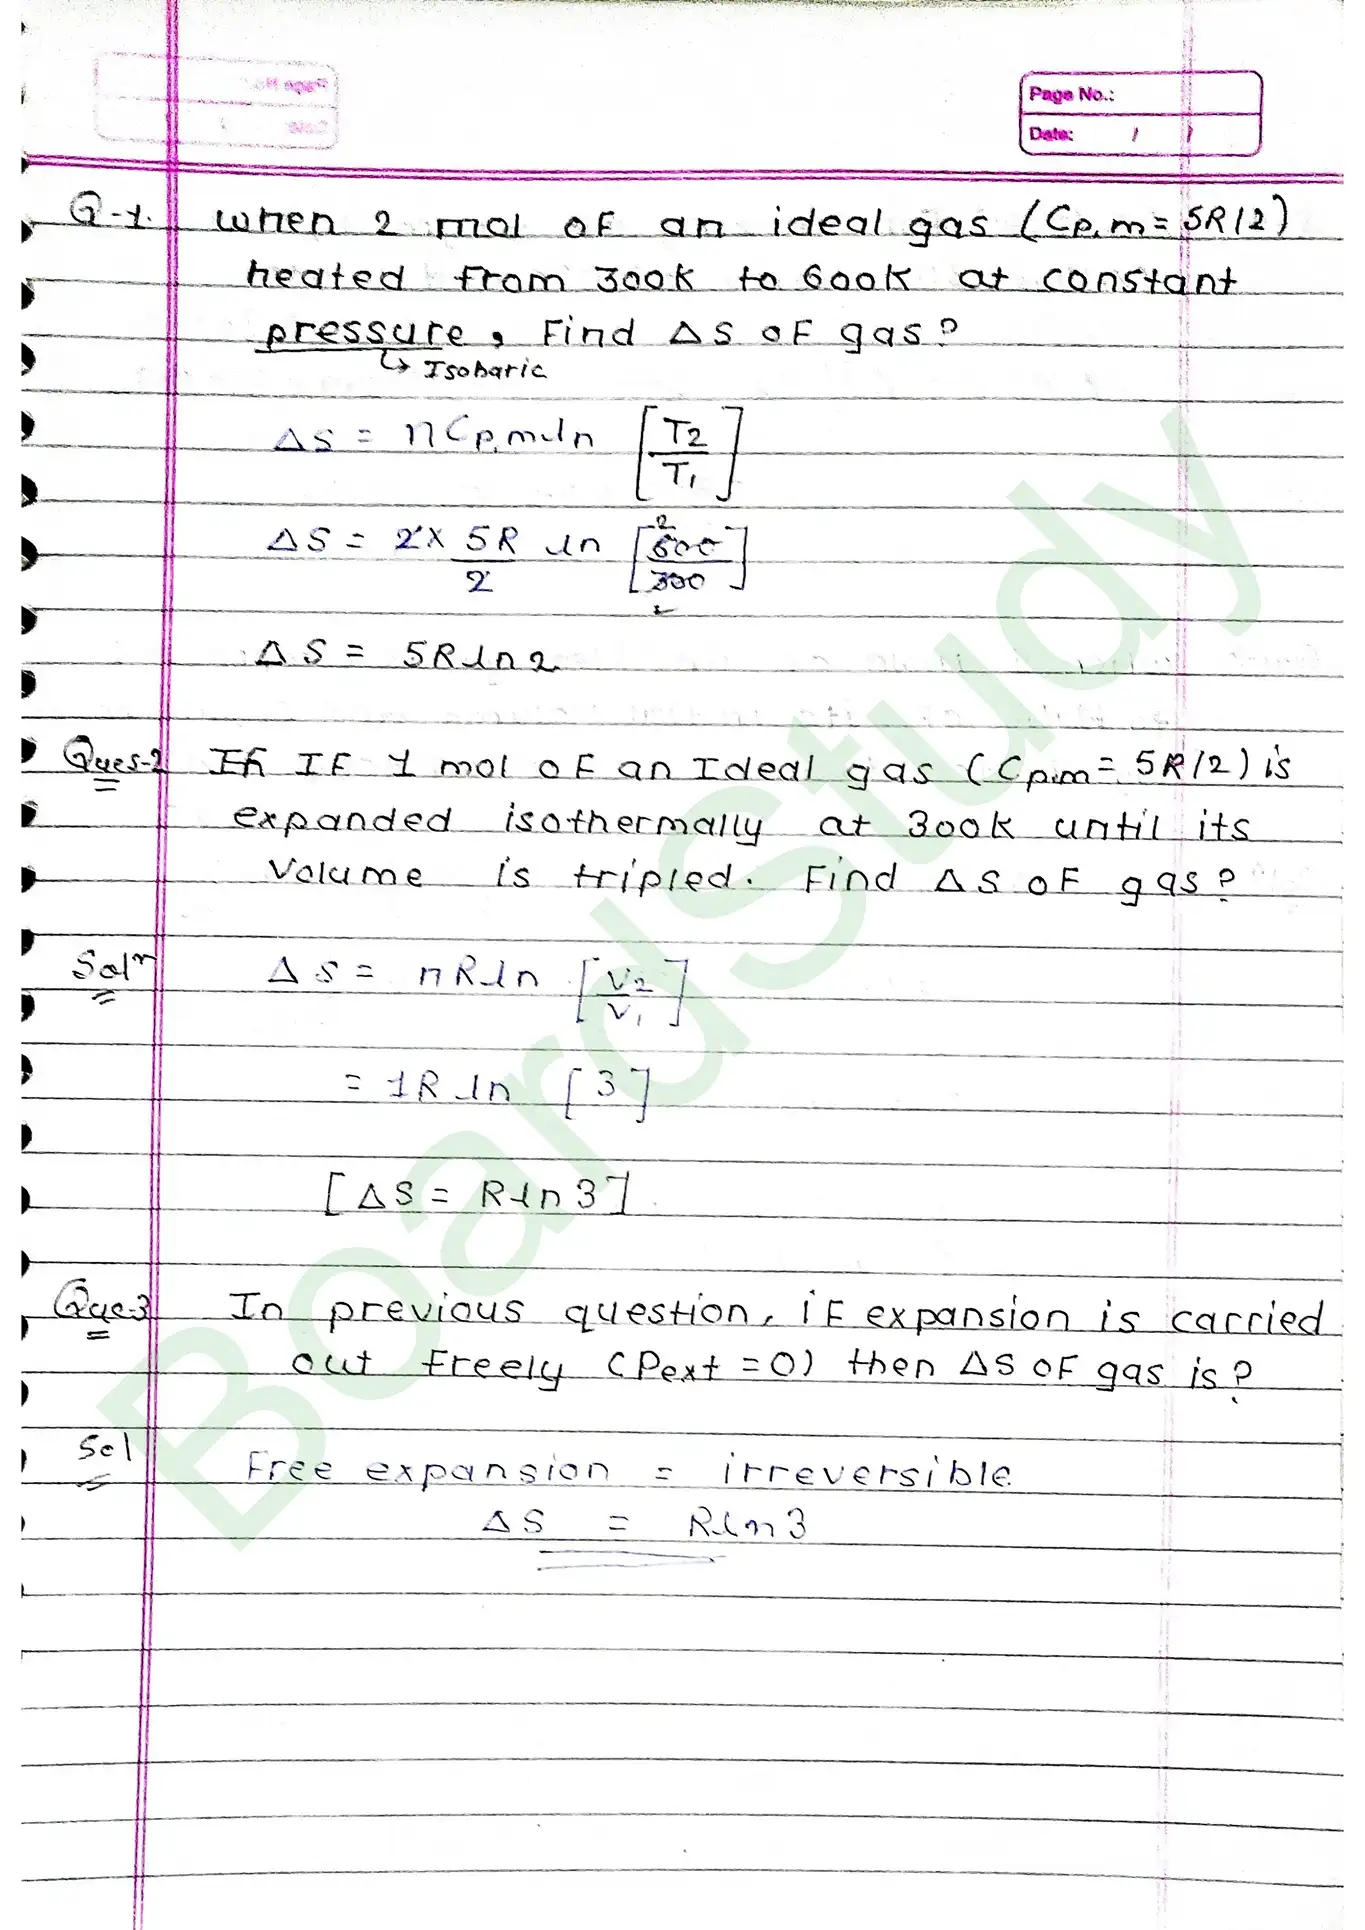 Page No.:
Date: / /
Q-1. When 2 mol of an ideal gas (Cp,m = 5R/2)
heated from 300K to 600K at constant
pressure, Find ΔS of gas?
↳ Isobaric
ΔS = nCp,m ln [T2/T1]
ΔS = 2 × 5R/2 ln [600/300]
2
ΔS = 5R ln 2
Ques-2 If 1 mol of an Ideal gas (Cp,m = 5R/2) is
expanded isothermally at 300K until its
Volume is tripled. Find ΔS of gas?
Solⁿ ΔS = nR ln [V2/V1]
= 1R ln [3]
[ΔS = R ln 3]
Que-3 In previous question, if expansion is carried
out freely (Pext = 0) then ΔS of gas is?
Sol Free expansion = irreversible
ΔS = R ln 3
BoardStudy